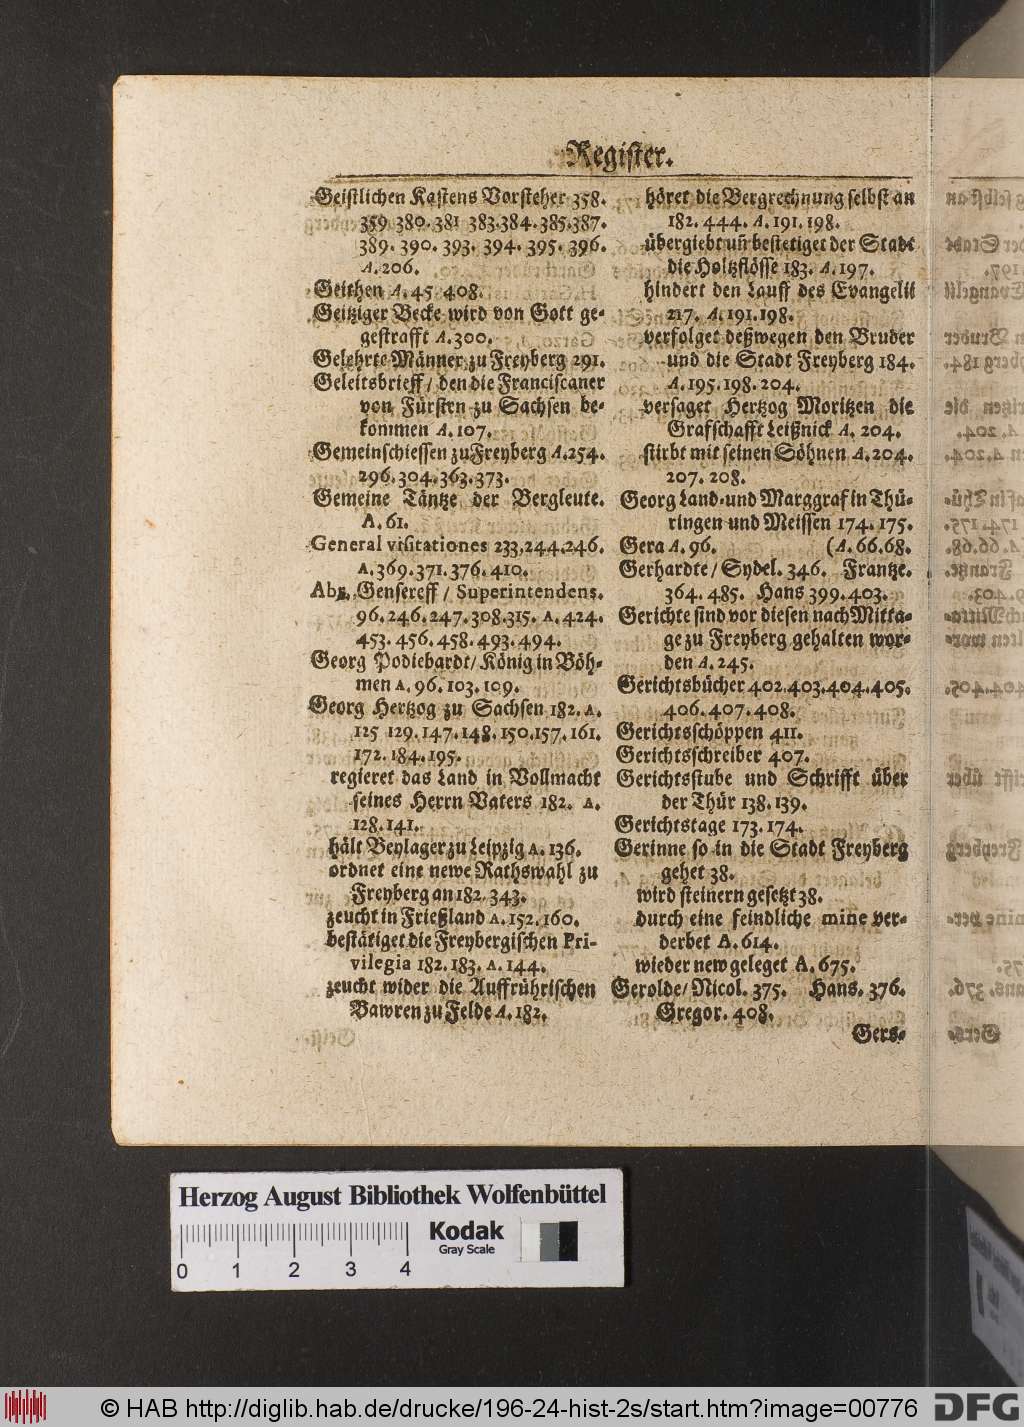 Register.
Geistlichen Kastens Vorsteher 358.
359 380. 381 383. 384. 385. 387.
389. 390. 393. 394. 395. 396.
A. 206.
Geithen A. 45 408.
Geitziger Becke wird von Gott ge-
gestrafft A. 300.
Gelehrte Männer zu Freyberg 291.
Geleitsbrieff / den die Franciscaner
von Fürsten zu Sachsen be-
kommen A. 107.
Gemeinschiessen zu Freyberg A. 254.
296. 304. 363. 373.
Gemeine Täntze der Bergleute.
A. 61.
General visitationes 233, 244. 246.
A. 369. 371. 376. 410.
Gensereff / Superintendens.
96. 246. 247. 308. 315. A. 424.
453. 456. 458. 493. 494.
Georg Podiebardt / König in Böh-
men A. 96. 103. 109.
Georg Hertzog zu Sachsen 182. A.
125 129. 147. 148. 150. 157. 161.
172. 184. 195.
regieret das Land in Vollmacht
seines Herrn Vaters 182. A.
128. 141.
hält Beylager zu Leipzig A. 136.
ordnet eine newe Rathswahl zu
Freyberg an 182. 343.
zeucht in Frießland A. 152. 160.
bestätiget die Freybergischen Pri-
vilegia 182. 183. A. 144.
zeucht wider die Auffrührischen
Bawren zu Felde A. 182.
höret die Bergrechnung selbst an
182. 444. A. 191. 198.
übergiebt uñ bestetiget der Stadt
die Holtzflösse 183. A. 197.
hindert den Lauff des Evangelii
217. A. 191. 198.
verfolget deßwegen den Bruder
und die Stadt Freyberg 184.
A. 195. 198. 204.
versaget Hertzog Moritzen die
Grafschafft Leißnick A. 204.
stirbt mit seinen Söhnen A. 204.
207. 208.
Georg Land- und Marggraf in Thü-
ringen und Meissen 174. 175.
Gera A. 96. (A. 66. 68.
Gerhardte / Sydel. 346. Frantze.
364. 485. Hans 399. 403.
Gerichte sind vor diesen nach Mitta-
ge zu Freyberg gehalten wor-
den A. 245.
Gerichtsbücher 402. 403. 404. 405.
406. 407. 408.
Gerichtsschöppen 411.
Gerichtsschreiber 407.
Gerichtsstube und Schrifft über
der Thür 138. 139.
Gerichtstage 173. 174.
Gerinne so in die Stadt Freyberg
gehet 38.
wird steinern gesetzt 38.
durch eine feindliche mine ver-
derbet A. 614.
wieder new geleget A. 675.
Gerolde / Nicol. 375. Hans. 376.
Gregor. 408.
Gers-
Herzog August Bibliothek Wolfenbüttel
Kodak
Gray Scale
0 1 2 3 4
© HAB http://diglib.hab.de/drucke/196-24-hist-2s/start.htm?image=00776
DFG